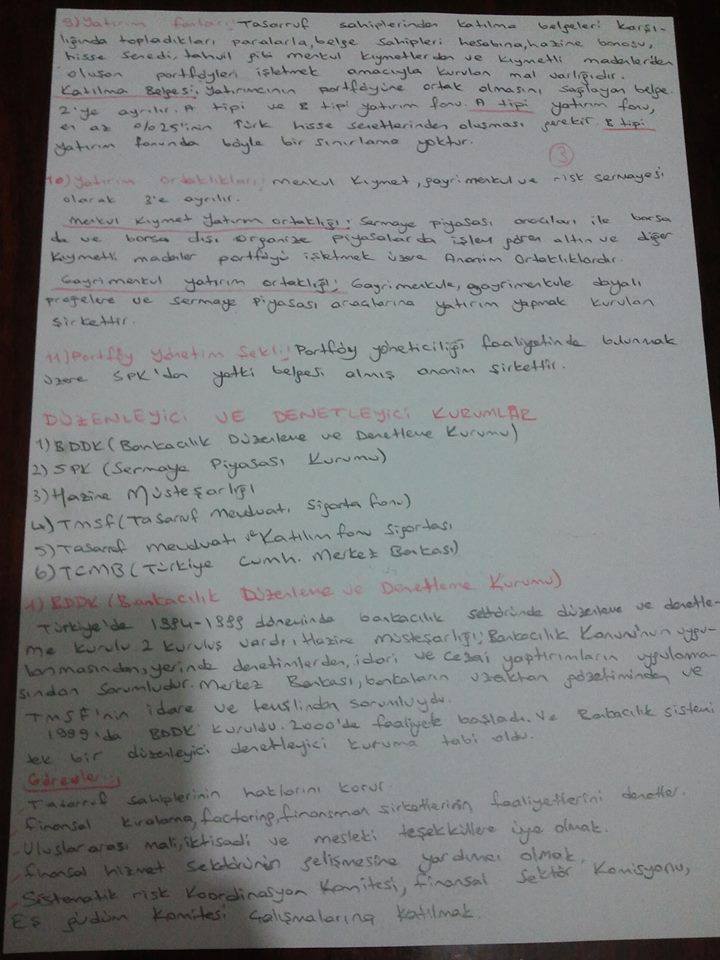 9) Yatırım fonları: Tasarruf sahiplerinden katılma belgeleri karşı-
lığında topladıkları paralarla, belge sahipleri hesabına, hazine bonosu,
hisse senedi, tahvil gibi menkul kıymetlerden ve kıymetli madenlerden
oluşan portföyleri işletmek amacıyla kurulan mal varlığıdır.
Katılma Belgesi; Yatırımcının portföyüne ortak olmasını sağlayan belge.
2'ye ayrılır. A tipi ve B tipi yatırım fonu. A tipi yatırım fonu,
en az %25'inin Türk hisse senetlerinden oluşması gerekir. B tipi
yatırım fonunda böyle bir sınırlama yoktur.
3
10) Yatırım Ortaklıkları: Menkul Kıymet, gayrimenkul ve risk sermayesi
olarak 3'e ayrılır.
Menkul Kıymet Yatırım ortaklığı: Sermaye piyasası araçları ile borsa
da ve borsa dışı organize piyasalarda işlem gören altın ve diğer
kıymetli madenler portföyü işletmek üzere Anonim Ortaklıklardır.
Gayrimenkul yatırım ortaklığı; Gayrimenkule, gayrimenkule dayalı
projelere ve sermaye piyasası araçlarına yatırım yapmak kurulan
şirkettir.
11) Portföy Yönetim Şekli: Portföy yöneticiliği faaliyetinde bulunmak
üzere SPK'dan yetki belgesi almış anonim şirkettir.
DÜZENLEYİCİ VE DENETLEYİCİ KURUMLAR
1) BDDK (Bankacılık Düzenleme ve Denetleme Kurumu)
2) SPK (Sermaye Piyasası Kurumu)
3) Hazine Müsteşarlığı
4) TMSF (Tasarruf Mevduatı Sigorta Fonu)
5) Tasarruf mevduatı ve Katılım fonu Sigortası
6) TCMB (Türkiye Cumh. Merkez Bankası)
1) BDDK (Bankacılık Düzenleme ve Denetleme Kurumu)
Türkiye'de 1994-1999 döneminde bankacılık sektöründe düzenleme ve denetle-
me kurulu 2 kuruluş vardı; Hazine müsteşarlığı; Bankacılık Kanunu'nun uygu-
lanmasından, yerinde denetimlerden, idari ve cezai yaptırımların uygulama-
sından sorumludur. Merkez Bankası, bankaların uzaktan gözetiminden ve
TMSF'nin idare ve temsilinden sorumluydu.
1999'da BDDK kuruldu. 2000'de faaliyete başladı. Ve Bankacılık sistemi
tek bir düzenleyici denetleyici kuruma tabi oldu.
Görevler;
Tasarruf sahiplerinin haklarını korur.
- Finansal kiralama, factoring, finansman şirketlerinin faaliyetlerini denetler.
- Uluslararası mali, iktisadi ve mesleki teşekküllere üye olmak.
- Finansal hizmet sektörünün gelişmesine yardımcı olmak.
- Sistematik risk Koordinasyon Komitesi, finansal sektör Komisyonu,
Eş güdüm Komitesi Çalışmalarına katılmak.